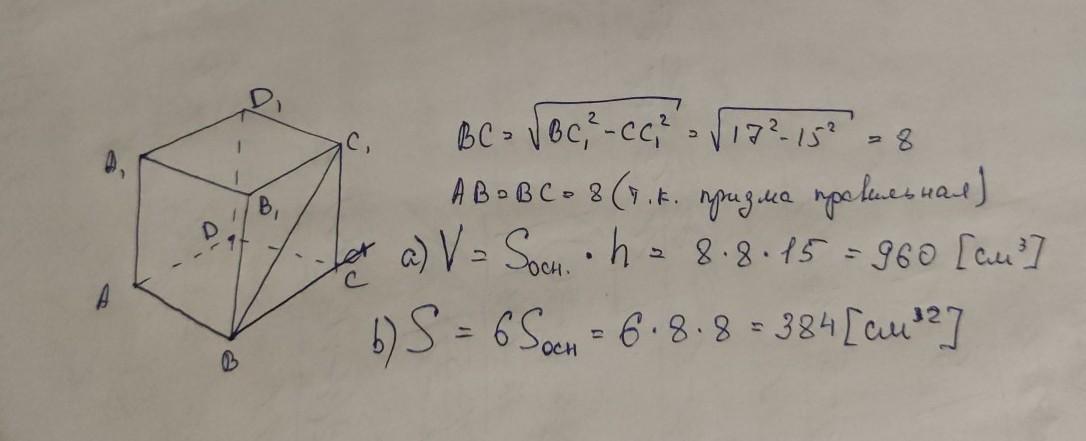 D₁
A₁
C₁
B₁
D
A
C
B
BC = √BC₁² - CC₁² = √17² - 15² = 8
AB = BC = 8 (т.к. призма правильная)
a) V = Sосн. · h = 8 · 8 · 15 = 960 [см³]
b) S = 6Sосн = 6 · 8 · 8 = 384 [см²]